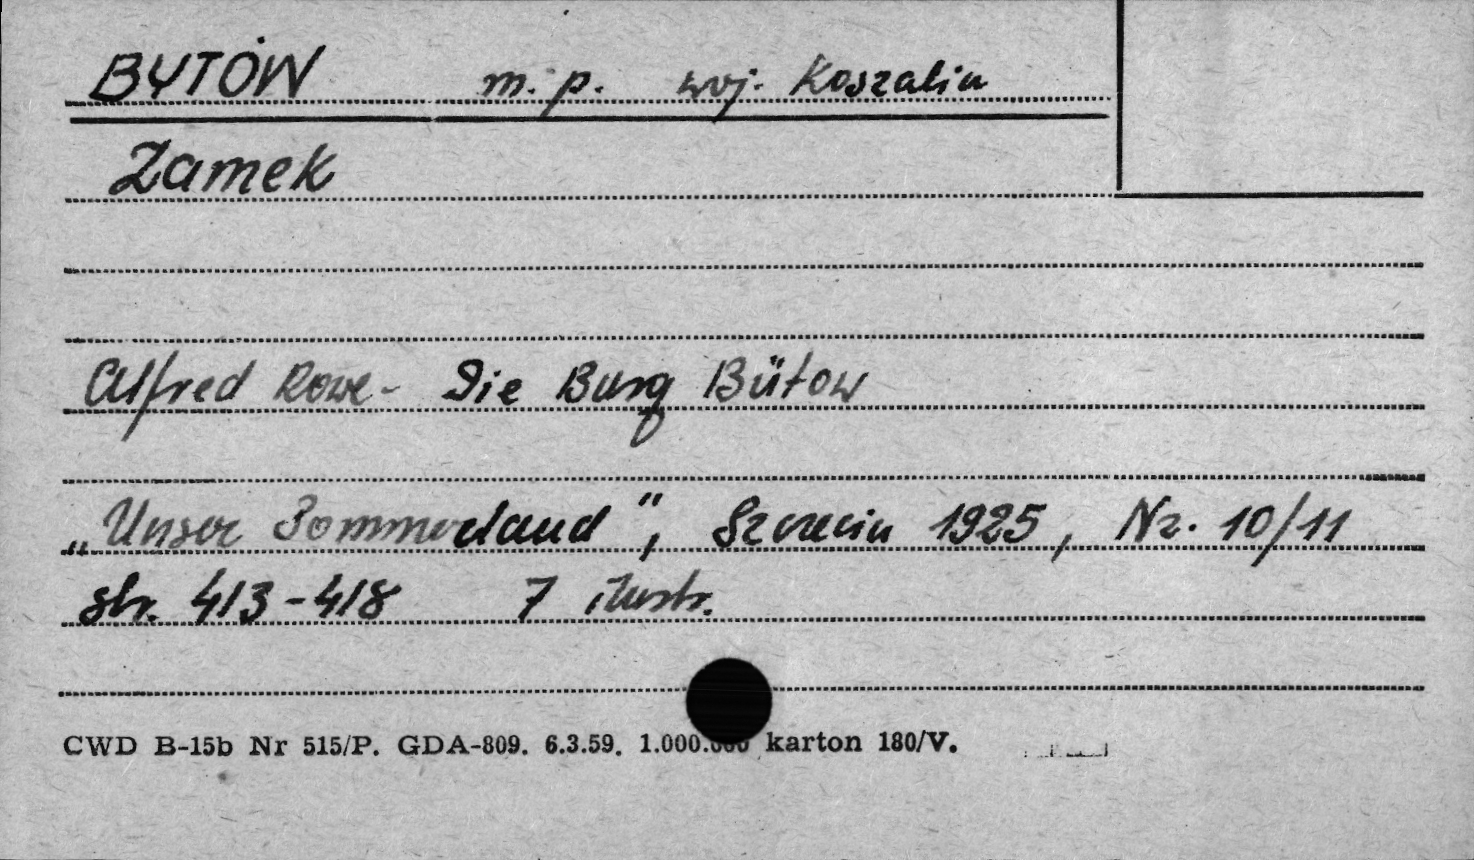 BYTÓW m. p. woj. Koszalin
Zamek
Alfred Rowe - Die Burg Bütow
„Unser Pommerland", Szczecin 1925, Nr. 10/11
str. 413-418 7 ilustr.
CWD B-15b Nr 515/P. GDA-809. 6.3.59. 1.000.000 karton 180/V.